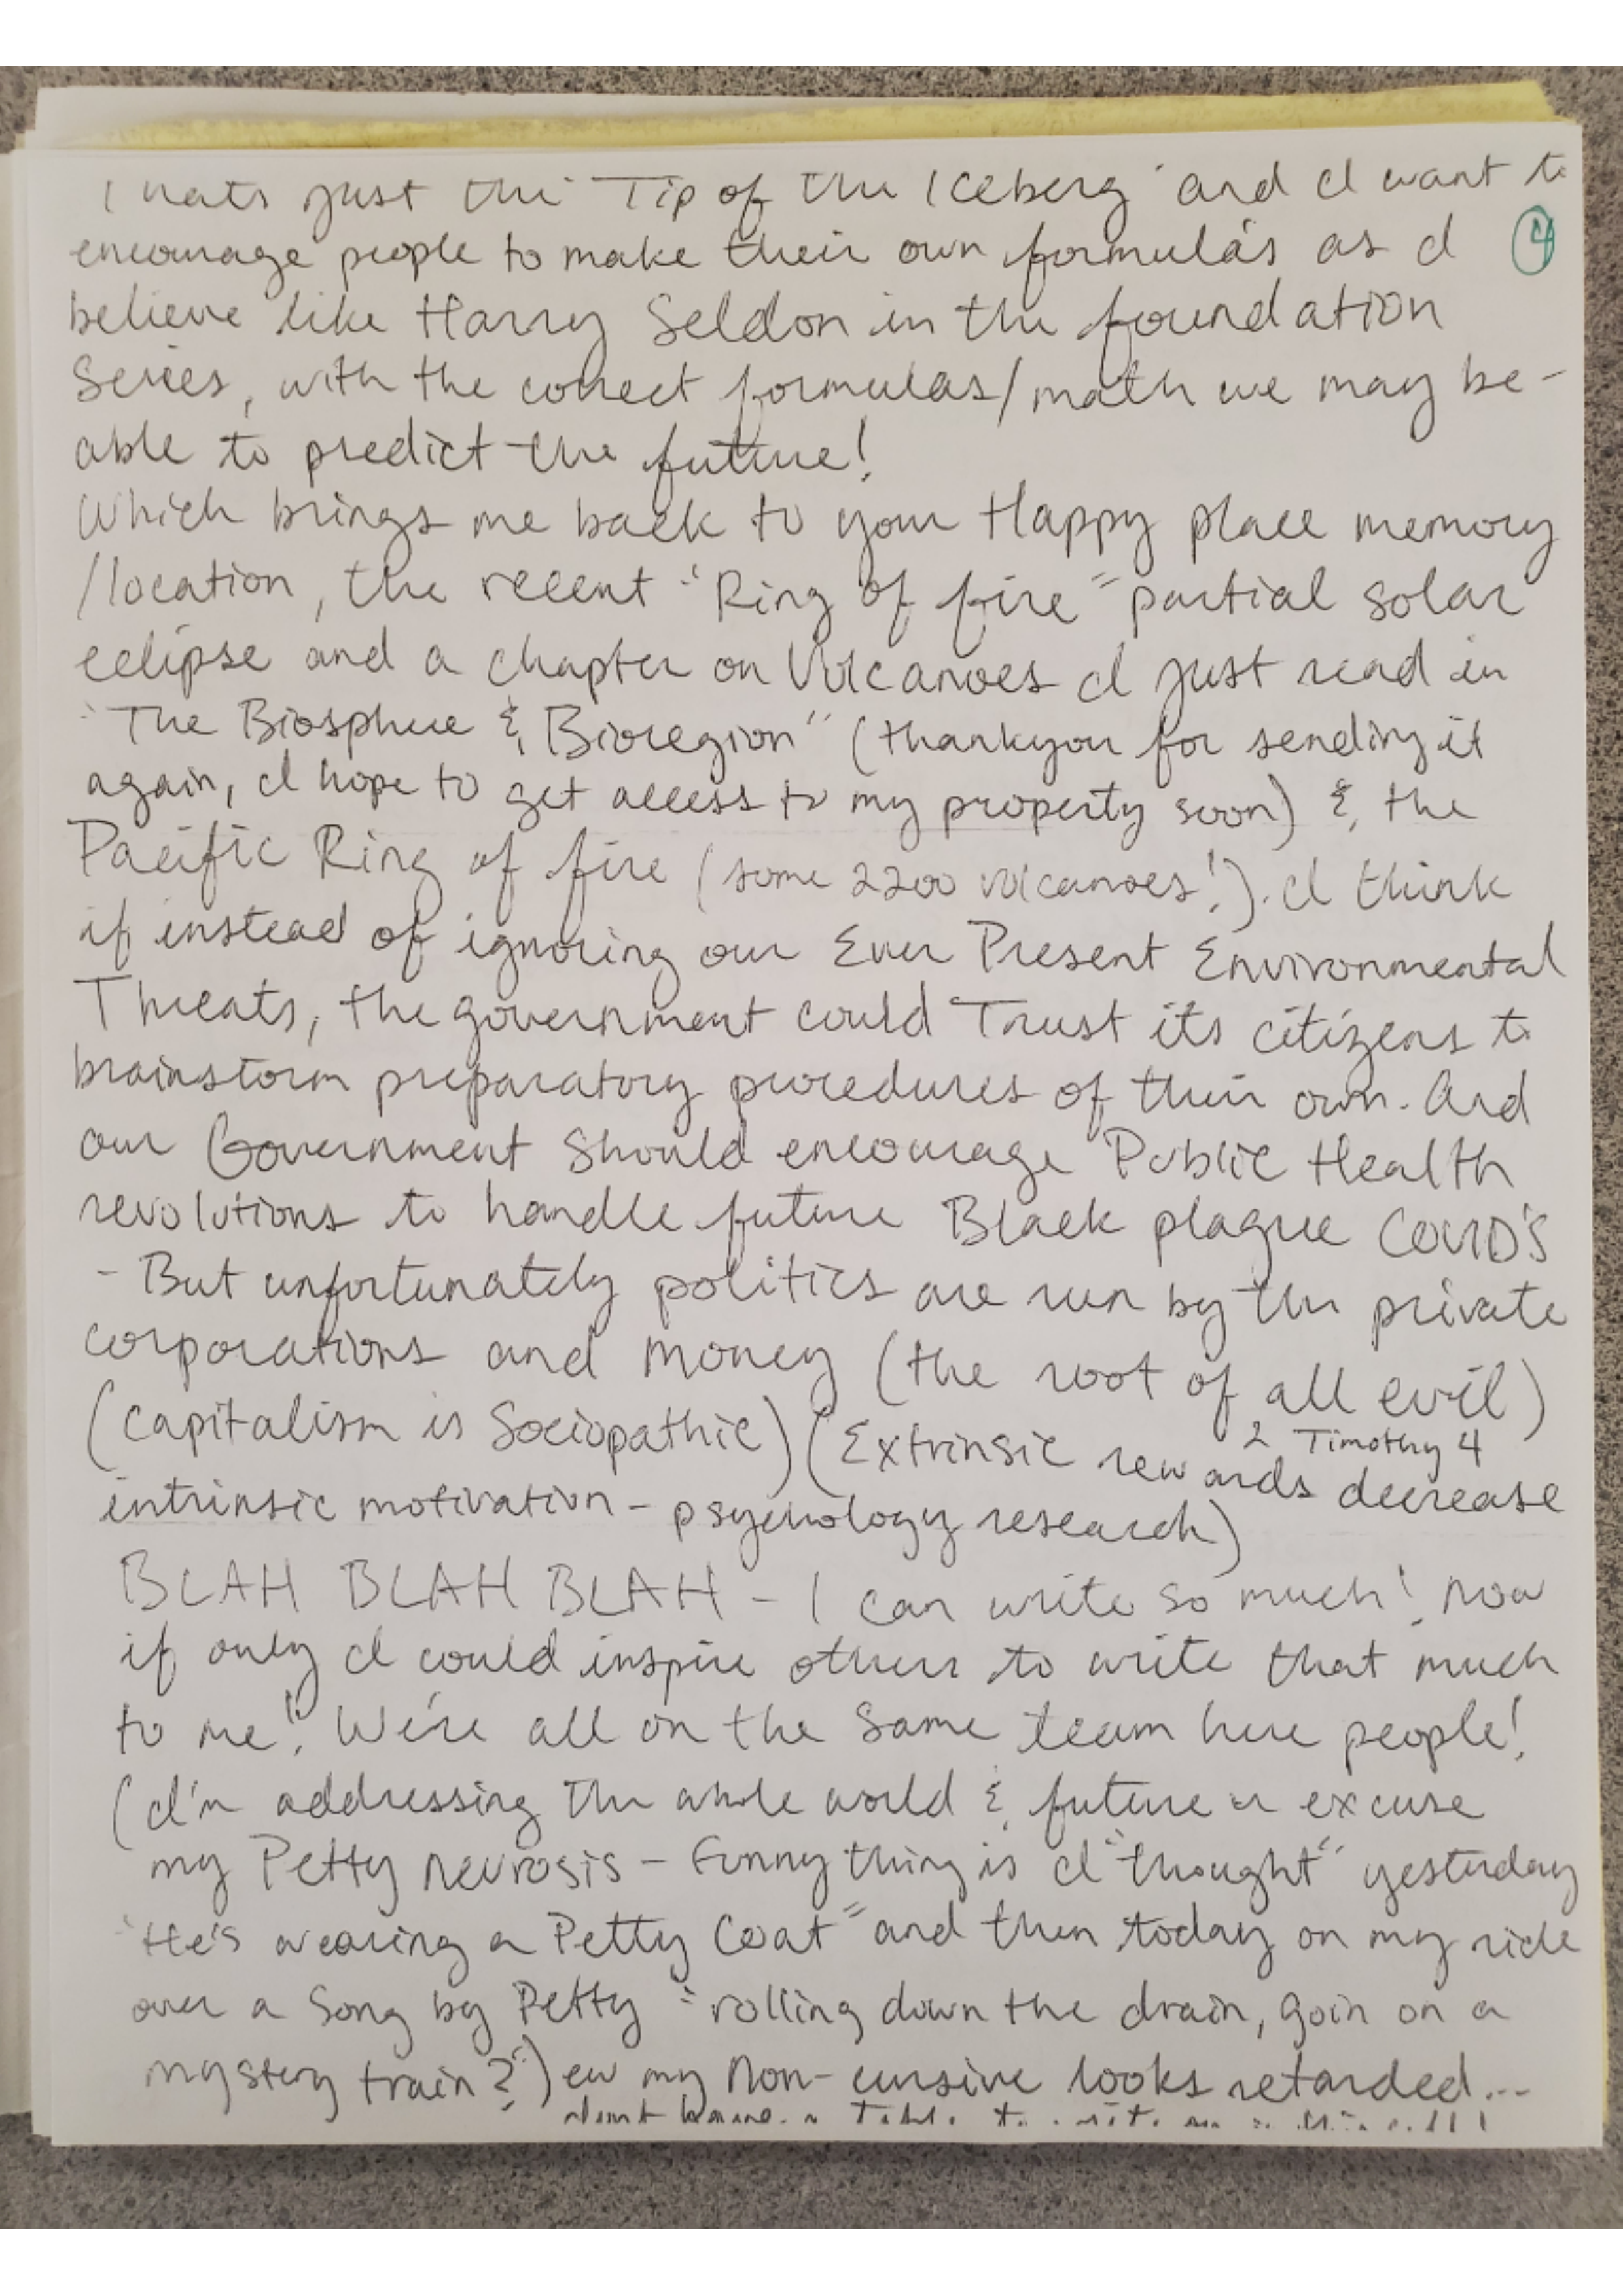 Thats just the "Tip of the Iceberg" and I want to
encourage people to make their own formula's as I
④
believe like Harry Seldon in the foundation
Series, with the correct formulas/math we may be-
able to predict the future!
Which brings me back to your Happy place memory
/location, the recent "Ring of fire" partial solar
eclipse and a chapter on Volcanoes I just read in
"The Biosphere & Bioregion" (thankyou for sending it
again, I hope to get access to my property soon) & the
Pacific Ring of fire (some 2200 volcanoes!). I think
if instead of ignoring our Ever Present Environmental
Threats, the government could Trust its citizens to
brainstorm preparatory procedures of their own. And
our Government Should encourage Public Health
revolutions to handle future Black plague COVID'S
- But unfortunately politics are run by the private
corporations and money (the root of all evil)
2 Timothy 4
(Capitalism is Sociopathic) (Extrinsic rewards decrease
intrinsic motivation - psychology research)
BLAH BLAH BLAH - I can write so much! Now
if only I could inspire others to write that much
to me! We're all on the same team here people!
(I'm addressing the whole world & future - excuse
my Petty Neurosis - Funny thing is I "thought" yesterday
"He's wearing a Petty Coat" and then today on my ride
over a Song by Petty "rolling down the drain, goin on a
mystery train?") ew my Non-cursive looks retarded...